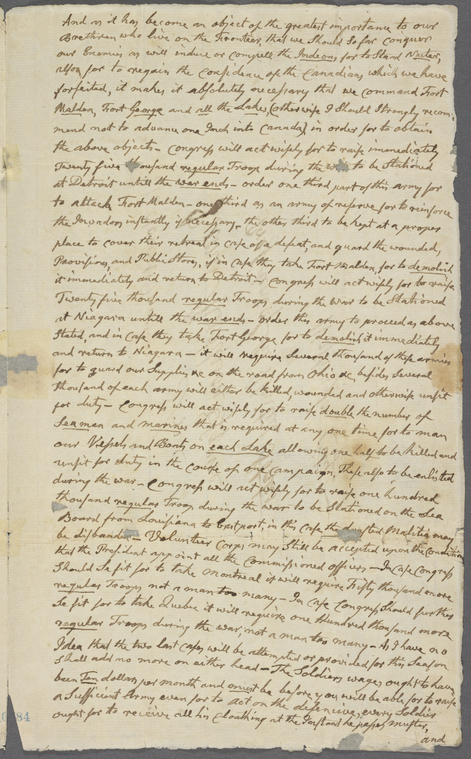 And as it has become an object of the greatest importance to our
Brethren who live on the Frontiers, that we should so far conquer
our Enemies as will induce or compell the Indeons for to Stand Nuter,
also for to regain the confidence of the Canadians which we have
forfaited, it makes it absolutely necessary that we command Fort
Malden, Fort George and all the Lakes, (otherwise I should strongly recom-
mend not to advance one Inch into Canada) in order for to obtain
the above object — Congress will act wisely for to raise immediately
Twenty five thousand regular Troops during the to be Stationed
at Detroit untill the war ends — order one third part of this army for
to attack Fort Malden — one third as an army of reserve for to reinforce
the Invadors instantly if necessary, the other third to be kept at a proper
place to cover their retreat in case of a defeat, and guard the wounded,
Provisions, and Public Stores, if in case they take Fort Malden for to demolish
it immediately and return to Detroit — Congress will act wisely for to raise
Twenty five thousand regular Troops during the war to be Stationed
at Niagara untill the war ends — order this army to proceed as above
Stated, and in case they take Fort George for to demolish it immediately
and return to Niagara — it will require several thousand of these armies
for to guard our Supplies &c on the road from Ohio &c, besides several
thousand of each army will either be killed, wounded and otherwise unfit
for duty — Congress will act wisely for to raise double the number of
Seamen and marines that is required at any one time for to man
our Vessels and Boats on each Lake allowing one half to be killed and
unfit for duty in the course of one campaign, these also to be enlisted
during the war — Congress will act wisely for to raise one hundred
thousand regular Troops during the war to be Stationed on the Sea
Board from Louisiana to Eastport, in this case the drafted Malitia may
be disbanded — Volunteer Corps may still be accepted upon the condition
that the President appoint all the commissioned officers — In case Congress
Should se fit for to take Montreal it will require Fifty thousand more
regular Troops not a man too many — In case Congress should further
se fit for to take Quebec it will require one hundred thousand more
regular Troops during the war, not a man too many — As I have no
Idea that the two last cases will be attempted or provided for this Season
I shall add no more on either head — The Soldiers wages ought to have
been Ten dollars per month and must be before you will be able for to raise
a Sufficient Army even for to act on the defencive, every Soldier
ought for to receive all his cloathing at the he passes muster,
and
84